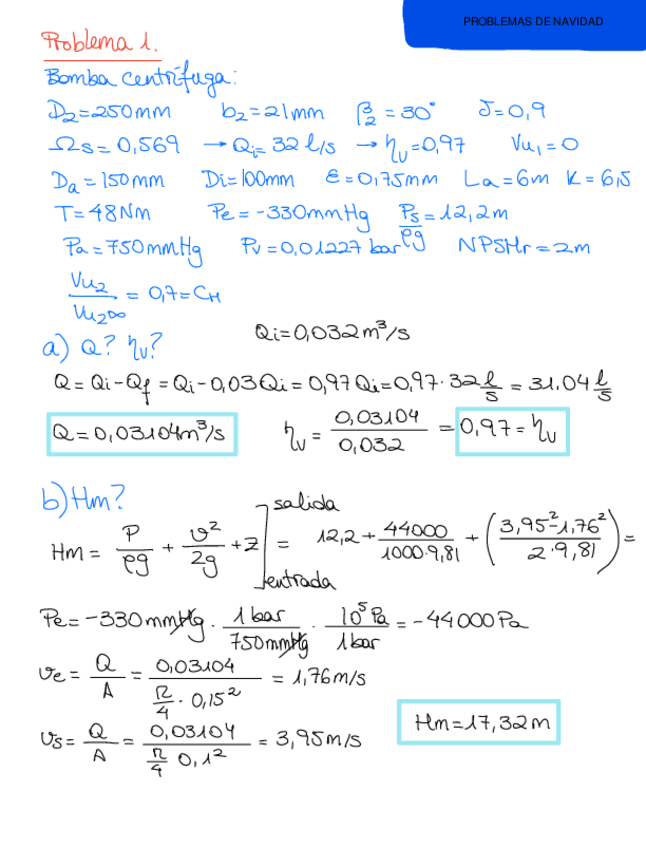 PROBLEMAS DE NAVIDAD
Problema 1.
Bomba centrífuga:
D₂=250mm b₂=21mm β₂=30° J=0,9
Ωs=0,569 → Qi=32 l/s → ηv=0,97 Vu₁=0
Da=150mm Di=100mm ε=0,75mm La=6m K=6,5
T=48Nm Pe=-330mmHg Ps/ρg=12,2m
Pa=750mmHg Pv=0,01227 bar NPSHr=2m
Vu₂/Vu₂∞ = 0,7=CH
Qi=0,032m³/s
a) Q? ηv?
Q=Qi-Qf=Qi-0,03Qi=0,97Qi=0,97·32 l/s = 31.04 l/s
Q=0,03104m³/s ηv = 0,03104/0,032 = 0,97=ηv
b) Hm?
Hm = P/ρg + v²/2g + z]salida entrada = 12,2+44000/1000·9,81 + (3,95²-1,76²/2·9,81) =
Pe=-330mmHg · 1bar/750mmHg · 10⁵Pa/1bar = -44000Pa
ve = Q/A = 0,03104/(π/4·0,15²) = 1,76m/s
Hm=17,32m
vs = Q/A = 0,03104/(π/4 0,1²) = 3,95m/s